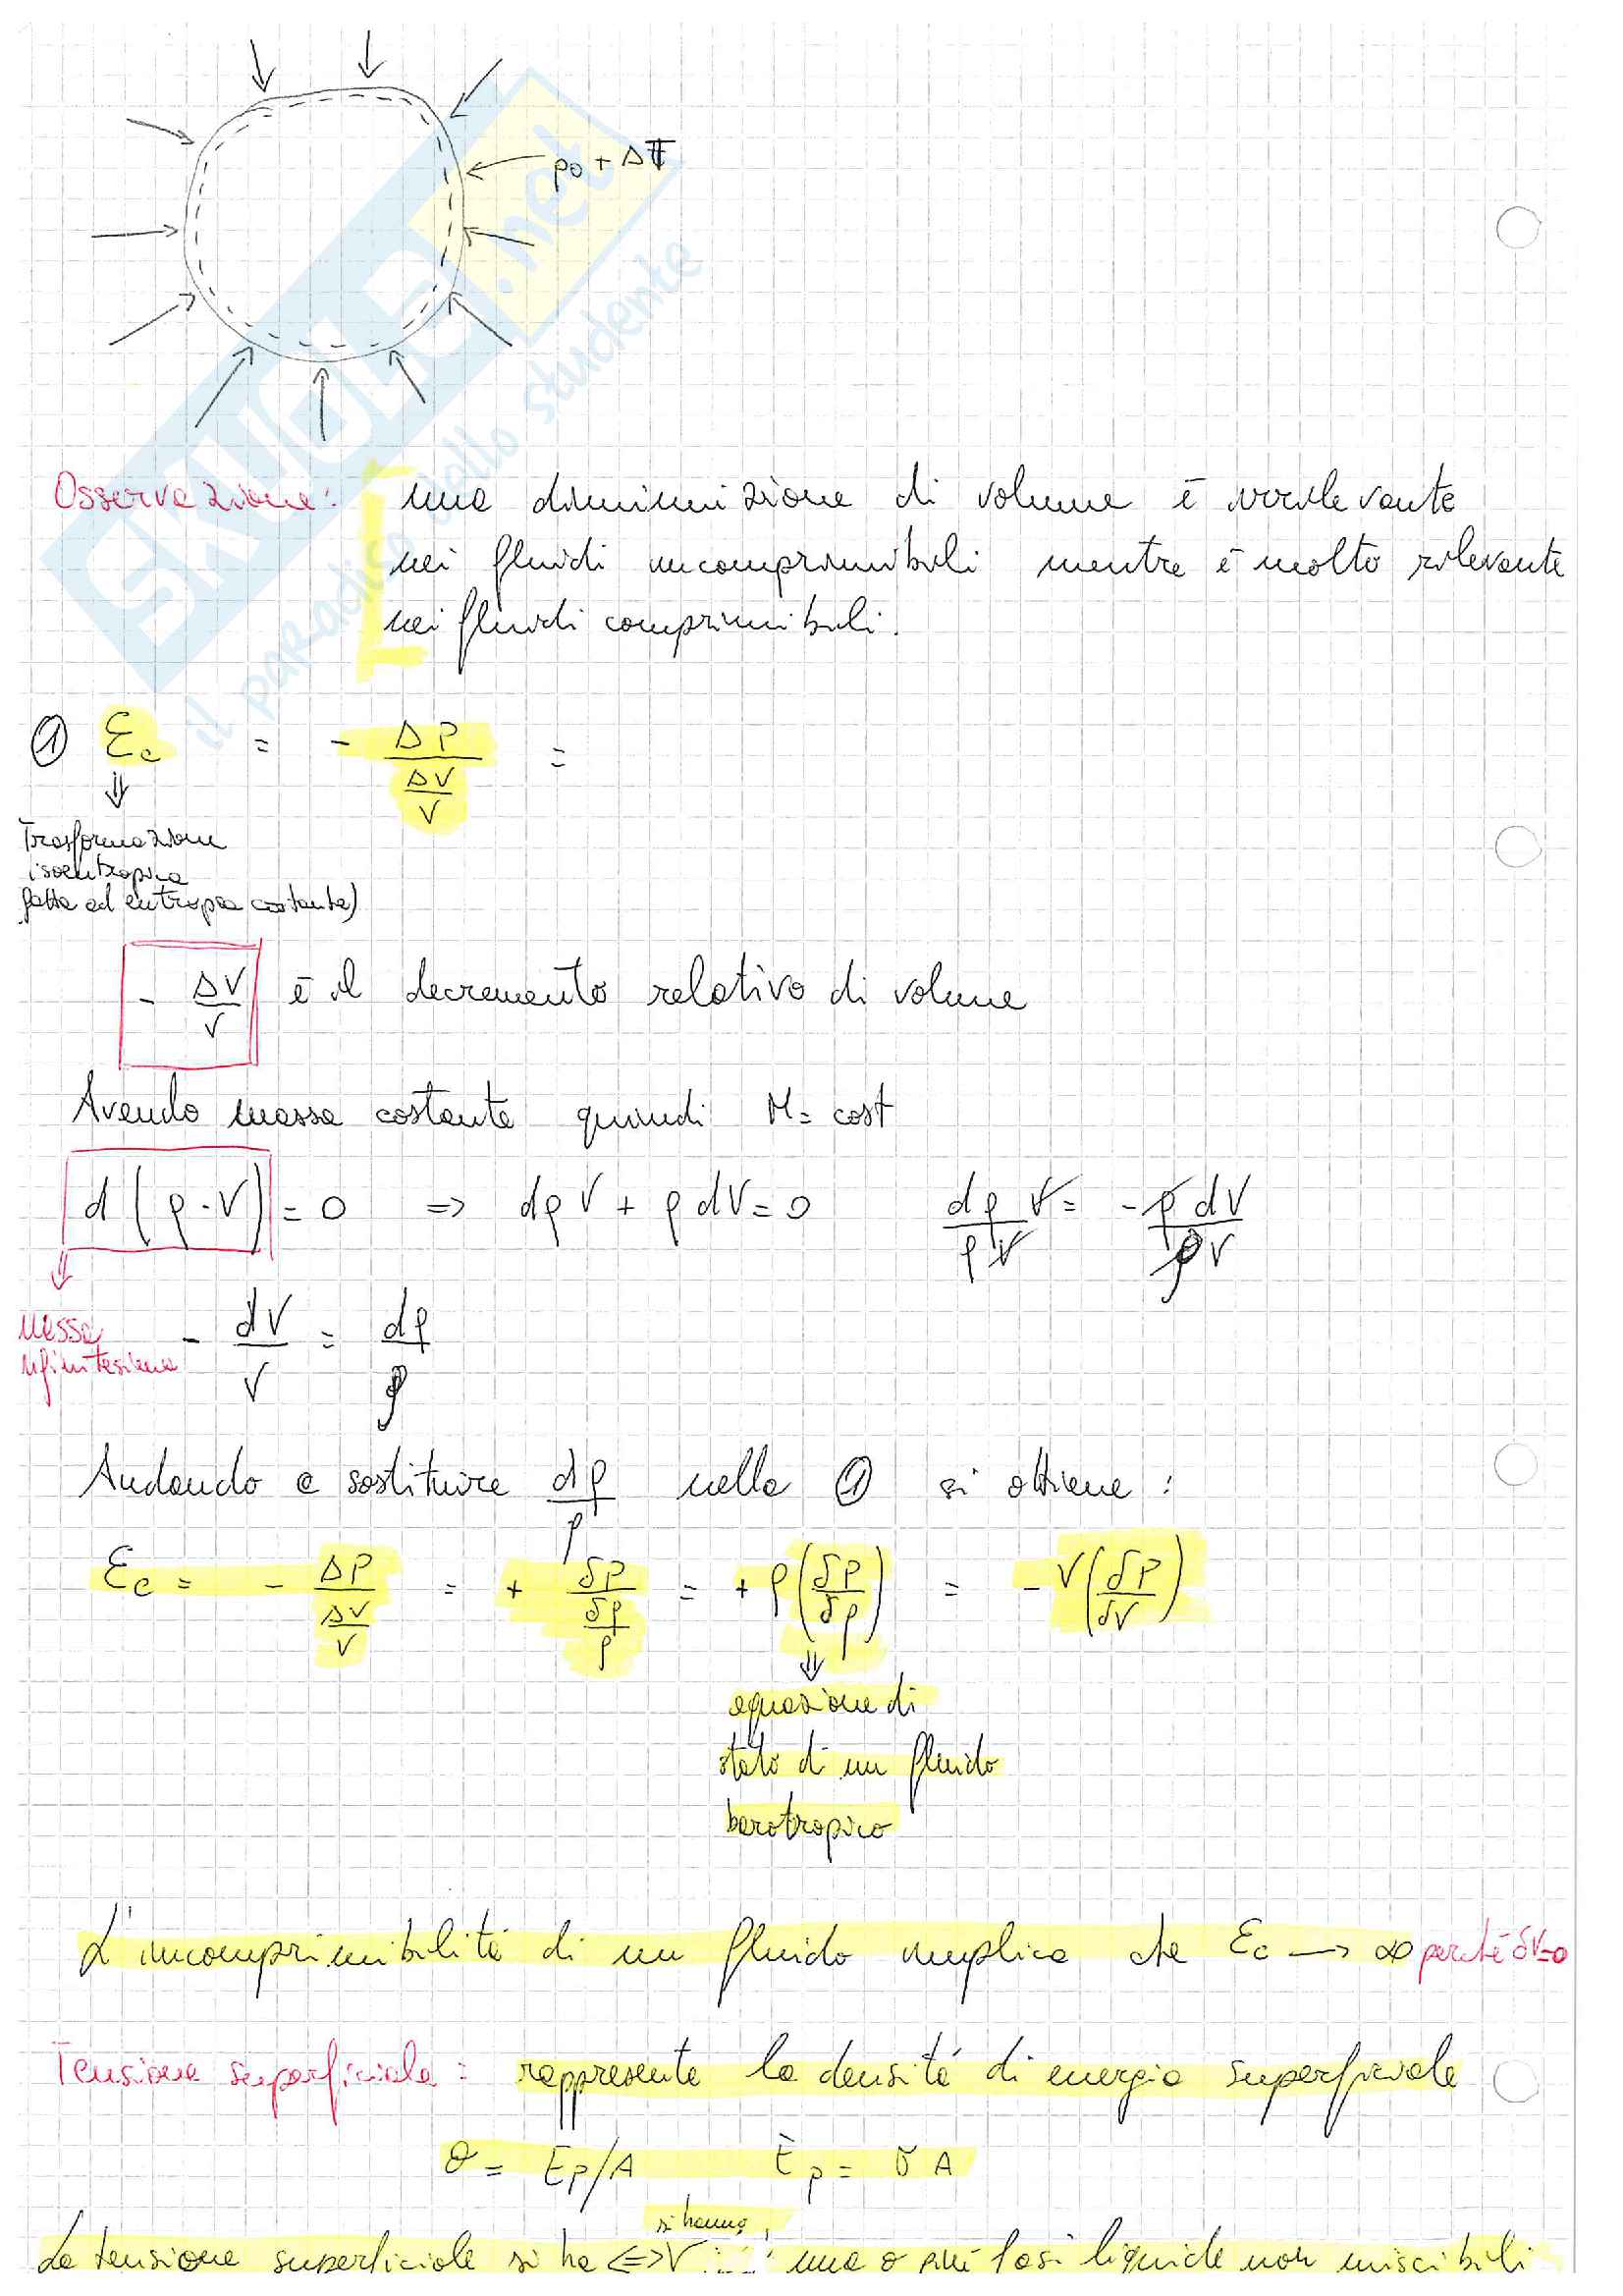 p0 + Δ
SKUOLA.net
il paradiso dello studente
Osservazione: una diminuizione di volume è irrilevante
nei fluidi incomprimibili mentre è molto rilevante
nei fluidi comprimibili.
① Ec = - ΔP / (ΔV/V) =
⇓
Trasformazione
isoentropica
fatta ad entropia costante)
- ΔV/V è il decremento relativo di volume
Avendo massa costante quindi M= cost
d(ρ·V) = 0 => dρ V + ρ dV = 0 dρ V/ρ V = - ρ dV/ρ V
⇓
massa
infinitesima
- dV/V = dρ/ρ
Andando a sostituire dρ/ρ nella ① si ottiene :
Ec = - ΔP/(ΔV/V) = + δP/(δρ/ρ) = + ρ(δP/δρ) = - V(δP/δV)
⇓
equazione di
stato di un fluido
barotropico
L'incomprimibilità di un fluido implica che Ec → ∞ perché δV=0
Tensione superficiale : rappresenta la densità di energia superficiale
σ = Ep/A Ep = σ A
si hanno
La tensione superficiale si ha <=> una o più fasi liquide non miscibili